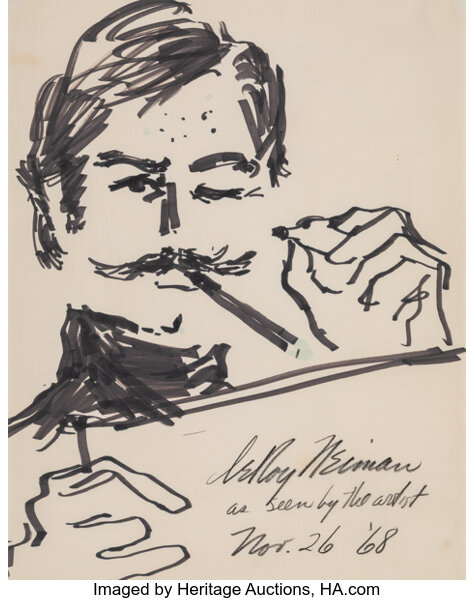 LeRoy Neiman
as seen by the artist
Nov. 26 '68
Imaged by Heritage Auctions, HA.com